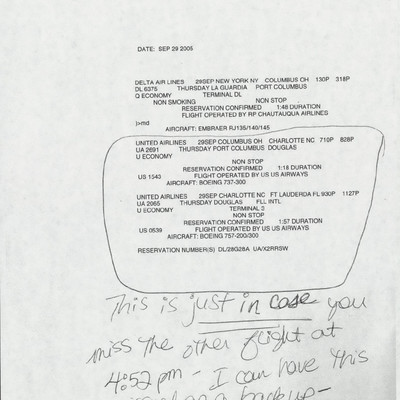 DATE: SEP 29 2005
DELTA AIR LINES 29SEP NEW YORK NY COLUMBUS OH 130P 318P
DL 6375 THURSDAY LA GUARDIA PORT COLUMBUS
Q ECONOMY TERMINAL DL
NON SMOKING NON STOP
RESERVATION CONFIRMED 1:48 DURATION
FLIGHT OPERATED BY RP CHAUTAUQUA AIRLINES
)>md
AIRCRAFT: EMBRAER RJ135/140/145
UNITED AIRLINES 29SEP COLUMBUS OH CHARLOTTE NC 710P 828P
UA 2691 THURSDAY PORT COLUMBUS DOUGLAS
U ECONOMY
NON STOP
RESERVATION CONFIRMED 1:18 DURATION
US 1543 FLIGHT OPERATED BY US US AIRWAYS
AIRCRAFT: BOEING 737-300
UNITED AIRLINES 29SEP CHARLOTTE NC FT LAUDERDA FL 930P 1127P
UA 2065 THURSDAY DOUGLAS FLL INTL
U ECONOMY TERMINAL 3
NON STOP
RESERVATION CONFIRMED 1:57 DURATION
US 0539 FLIGHT OPERATED BY US US AIRWAYS
AIRCRAFT: BOEING 757-200/300
RESERVATION NUMBER(S) DL/28G28A UA/X2RRSW
This is just in case you
miss the other flight at
4:52 pm - I can have this
as a backup-